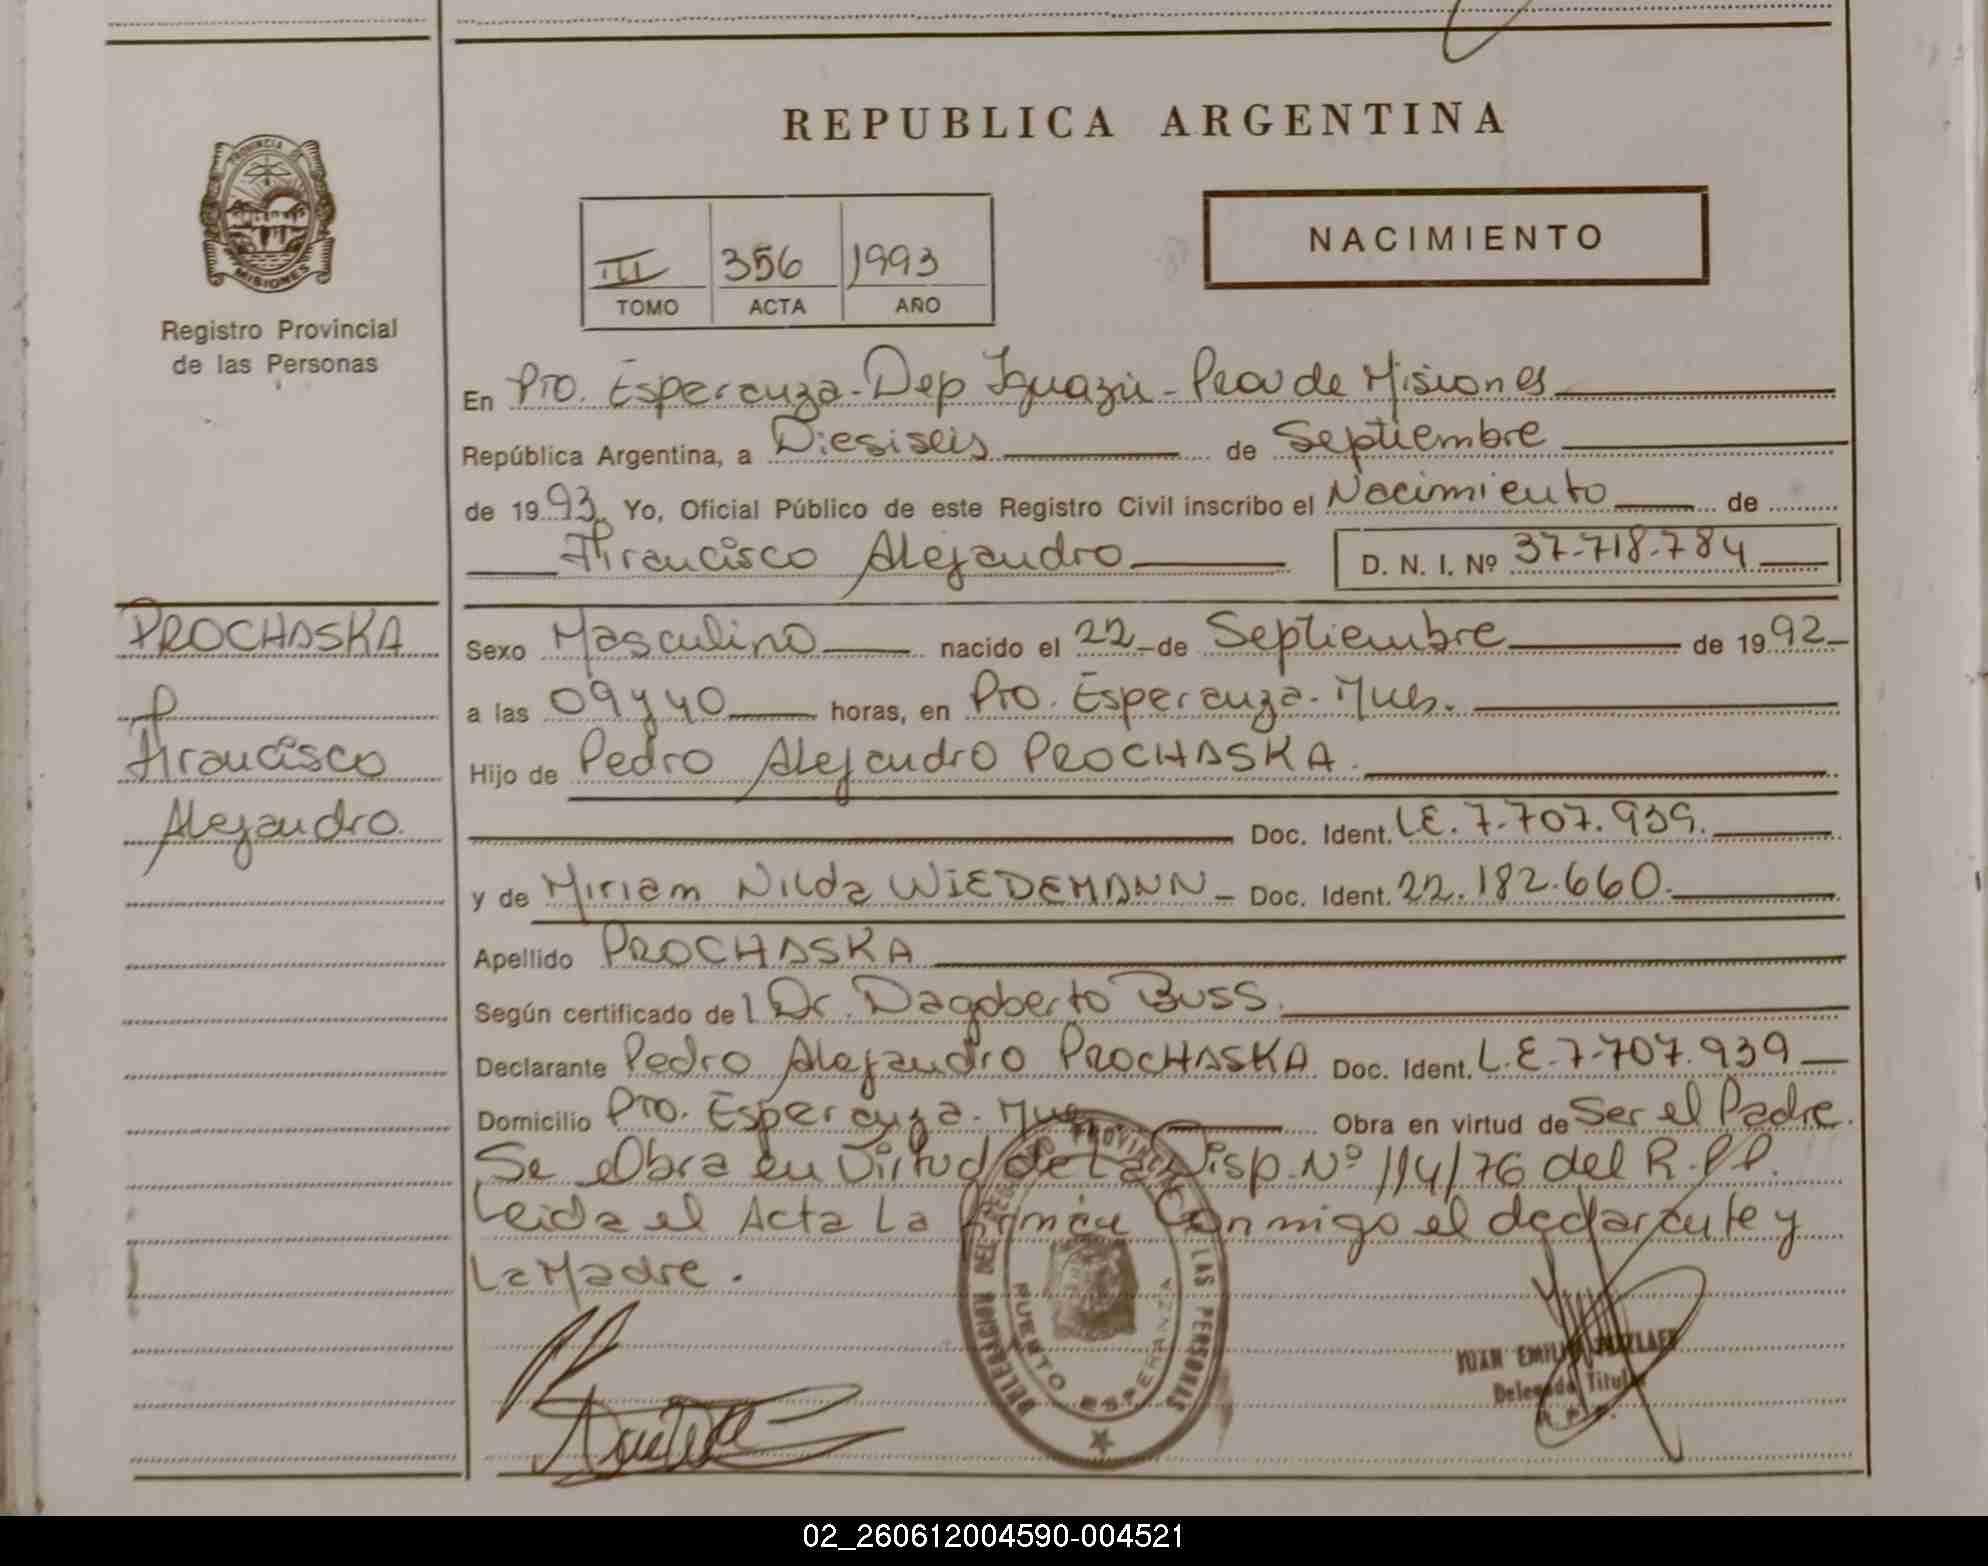 REPUBLICA ARGENTINA
PROVINCIA DE
MISIONES
Registro Provincial
de las Personas
NACIMIENTO
III 356 1993
TOMO ACTA AÑO
En Pto. Esperanza - Dep Iguazú - Prov de Misiones
República Argentina, a Diesiseis de Septiembre
de 1993 Yo, Oficial Público de este Registro Civil inscribo el Nacimiento de
Francisco Alejandro D. N. I. Nº 37-718-784
PROCHASKA
Francisco
Alejandro.
Sexo Masculino nacido el 22 de Septiembre de 1992
a las 09 y 40 horas, en Pto. Esperanza - Mnes.
Hijo de Pedro Alejandro PROCHASKA.
Doc. Ident. LE. 7.707.939.
y de Miriam Nilda WIEDEMANN - Doc. Ident. 22.182.660.
Apellido PROCHASKA
Según certificado del Dr. Dagoberto Buss.
Declarante Pedro Alejandro PROCHASKA Doc. Ident. L.E-7-707.939
Domicilio Pto. Esperanza - Mnes Obra en virtud de Ser el Padre.
Se Obra en Virtud de La Disp. Nº 114/76 del R.P.P.
Leida el Acta La firman Conmigo el declarante y
La Madre.
DELEGACION DEL REGISTRO PROVINCIAL DE LAS PERSONAS
PUERTO ESPERANZA
JUAN EMILIO
Delegado Titular
02_260612004590-004521